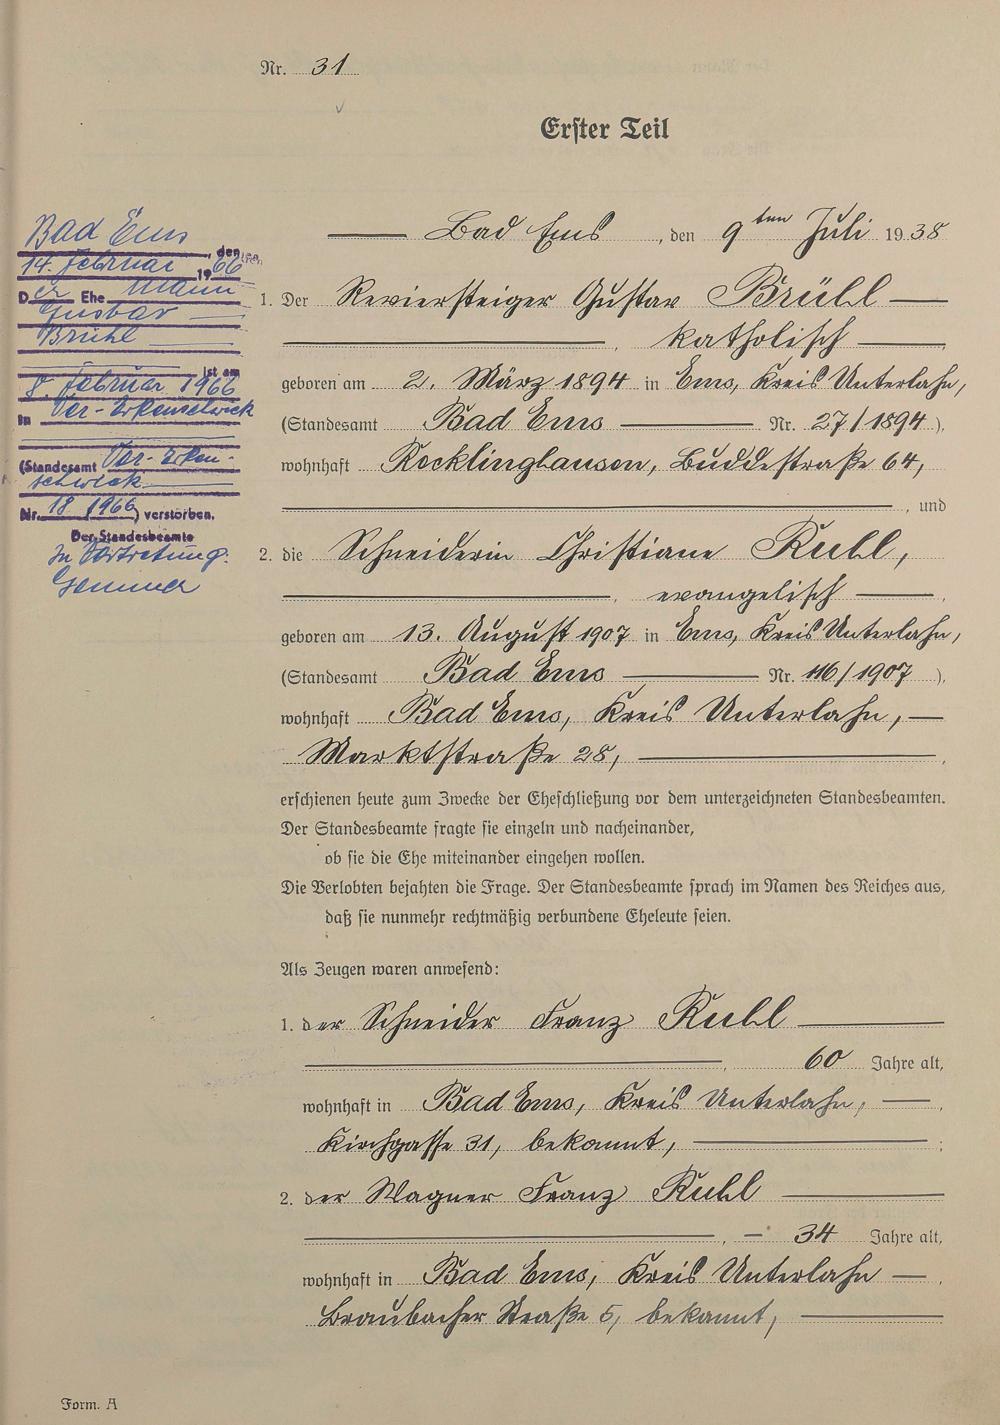 Nr. 31
Erster Teil
Bad Ems, den 9ten Juli 1938
1. Der Reviersteiger Gustav Brühl
, katholisch
geboren am 2. März 1894 in Ems, Kreis Unterlahn,
(Standesamt Bad Ems Nr. 27/1894),
wohnhaft Recklinghausen, Buddestraße 64,
, und
2. die Schneiderin Christiane Kuhl,
, evangelisch,
geboren am 13. August 1907 in Ems, Kreis Unterlahn,
(Standesamt Bad Ems Nr. 116/1907),
wohnhaft Bad Ems, Kreis Unterlahn,
Marktstraße 28,
erschienen heute zum Zwecke der Eheschließung vor dem unterzeichneten Standesbeamten.
Der Standesbeamte fragte sie einzeln und nacheinander,
ob sie die Ehe miteinander eingehen wollen.
Die Verlobten bejahten die Frage. Der Standesbeamte sprach im Namen des Reiches aus,
daß sie nunmehr rechtmäßig verbundene Eheleute seien.
Als Zeugen waren anwesend:
1. der Schneider Franz Kuhl
, 60 Jahre alt,
wohnhaft in Bad Ems, Kreis Unterlahn,
Kirchgasse 31, bekannt,
2. der Wagner Franz Kuhl
, 34 Jahre alt,
wohnhaft in Bad Ems, Kreis Unterlahn
Braubacher Straße 5, bekannt,
Form. A
Bad Ems, den
14. Februar 1966
Der Ehemann
Gustav
Brühl
ist am
8. Februar 1966
in Oer-Erkenschwick
(Standesamt Oer-Erken-
schwick
Nr. 18/1966) verstorben.
Der Standesbeamte
In Vertretung: